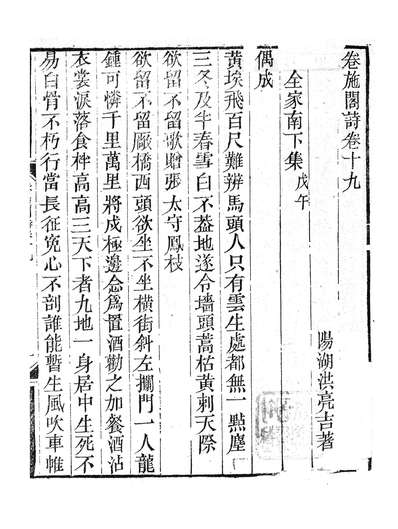 卷施閣詩卷十九
陽湖洪亮吉著
全家南下集戊午
偶成
黃埃飛百尺難辨馬頭人只有雲生處都無一點塵
三冬及半春雪白不葢地遂令墻頭蒿枯黃刺天際
欲留不留歌贈張太守鳳枝
欲留不留厰橋西頭欲坐不坐橫街斜左攔門一人龍
鍾可憐千里萬里將成極邊念爲置酒勸之加餐酒沾
衣裳淚落食柈高高三天下者九地一身居中生死不
易白骨不朽行當長征寃心不剖誰能暫生風吹車帷